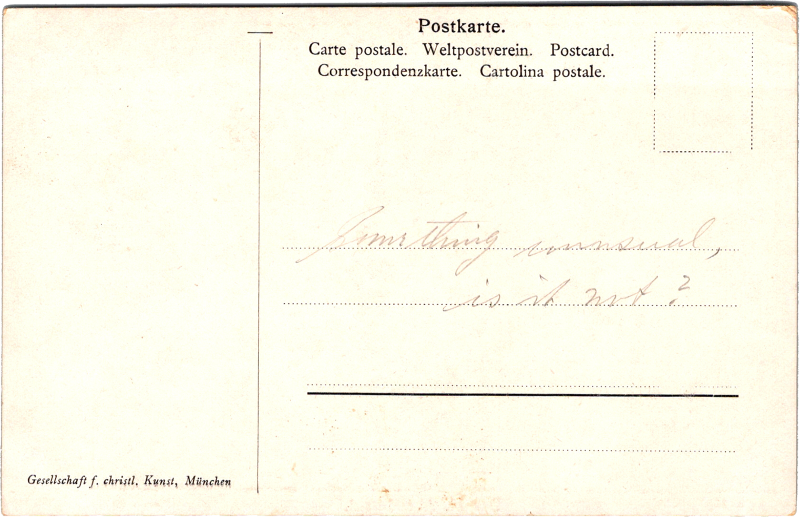 Postkarte.
Carte postale. Weltpostverein. Postcard.
Correspondenzkarte. Cartolina postale.
Something unusual,
is it not?
Gesellschaft f. christl. Kunst, München